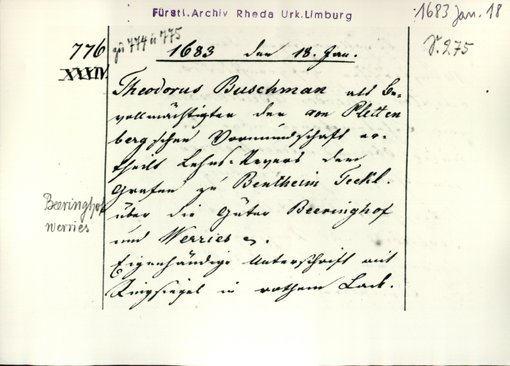 Fürstl. Archiv Rheda Urk. Limburg
1683 Jan. 18
V. 275
776
zu 774 u 775
XXXIV
1683 den 18. Jan.
Theodorus Buschman als Be-
vollmächtigter der von Pletten
bergschen Vormundschaft er-
theilt Lehns-Revers dem
Grafen zu Bentheim Teckl.
über die Güter Beeringhof
und Werries
Beeringhof
Werries
Eigenhändige Unterschrift mit
Ringsiegel in rothem Lack.